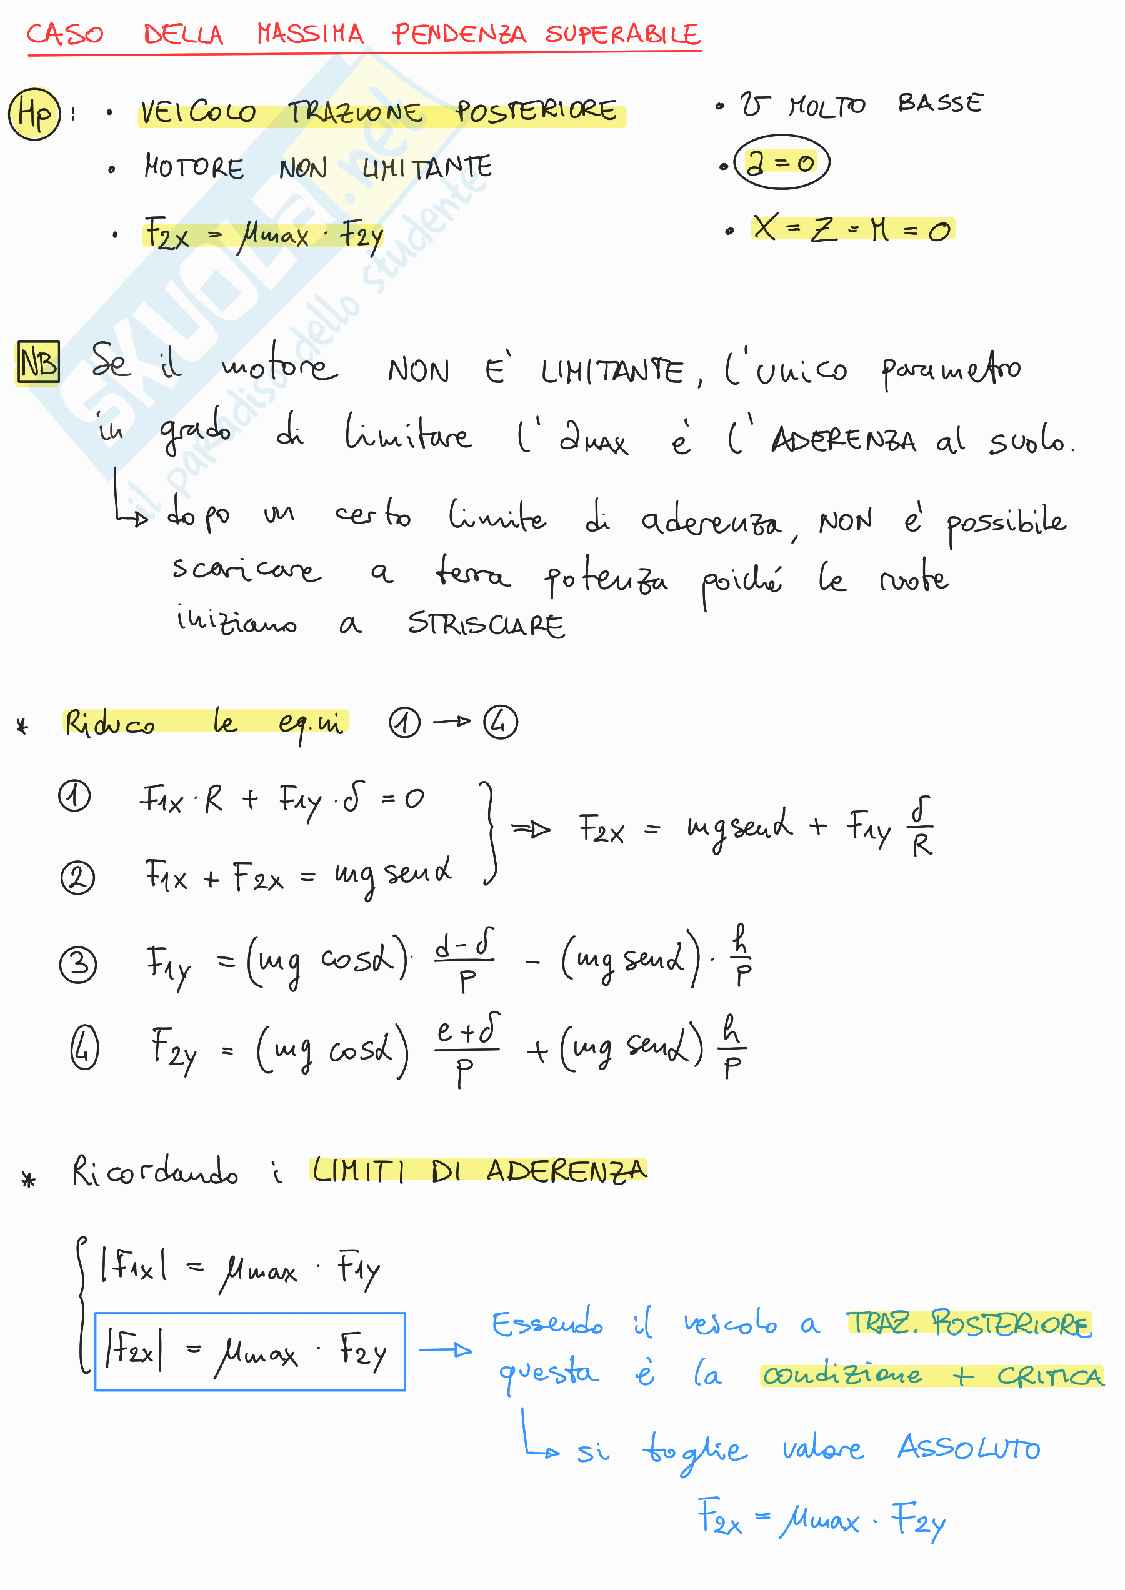 CASO DELLA MASSIMA PENDENZA SUPERABILE
Hp : • VEICOLO TRAZIONE POSTERIORE • v MOLTO BASSE
• MOTORE NON LIMITANTE • a = 0
• F2x = μmax · F2y • X = Z = M = 0
NB Se il motore NON E' LIMITANTE, l'unico parametro
in grado di limitare l'aMAX è l'ADERENZA al suolo.
↳ dopo un certo limite di aderenza, NON è possibile
scaricare a terra potenza poiché le ruote
iniziano a STRISCIARE
* Riduco le eq.ni ① → ④
① F1x · R + F1y · δ = 0
② F1x + F2x = mg senα
} ⇒ F2x = mg senα + F1y δ/R
③ F1y = (mg cosα) · (d-δ)/p - (mg senα) · h/p
④ F2y = (mg cosα) (e+δ)/p + (mg senα) h/p
* Ricordando i LIMITI DI ADERENZA
{ |F1x| = μmax · F1y
|F2x| = μmax · F2y → Essendo il veicolo a TRAZ. POSTERIORE
questa è la condizione + CRITICA
↳ si toglie valore ASSOLUTO
F2x = μmax · F2y
SKUOLA.net
il paradiso dello studente